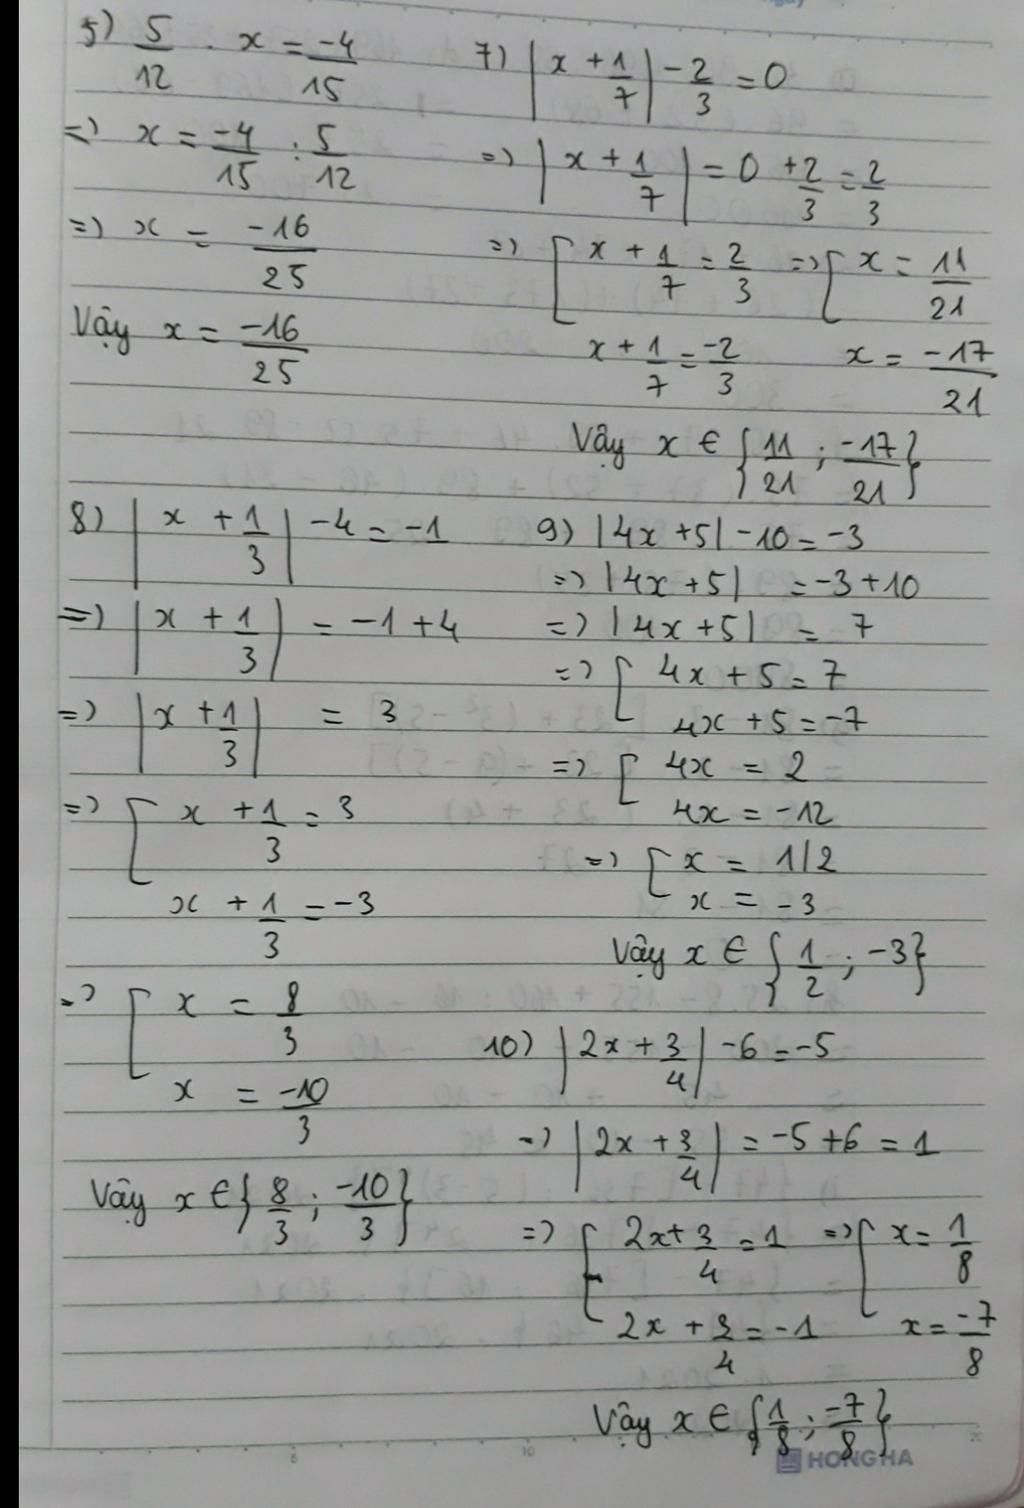 5) 5/12 . x = -4/15
=> x = -4/15 : 5/12
=> x = -16/25
Vậy x = -16/25
7) |x + 1/7| - 2/3 = 0
=> |x + 1/7| = 0 + 2/3 = 2/3
=> [ x + 1/7 = 2/3 => [ x = 11/21
x + 1/7 = -2/3 x = -17/21
Vậy x ∈ {11/21 ; -17/21}
8) |x + 1/3| - 4 = -1
=> |x + 1/3| = -1 + 4
=> |x + 1/3| = 3
=> [ x + 1/3 = 3
x + 1/3 = -3
=> [ x = 8/3
x = -10/3
Vậy x ∈ {8/3 ; -10/3}
9) |4x + 5| - 10 = -3
=> |4x + 5| = -3 + 10
=> |4x + 5| = 7
=> [ 4x + 5 = 7
4x + 5 = -7
=> [ 4x = 2
4x = -12
=> [ x = 1/2
x = -3
Vậy x ∈ {1/2 ; -3}
10) |2x + 3/4| - 6 = -5
=> |2x + 3/4| = -5 + 6 = 1
=> [ 2x + 3/4 = 1 => [ x = 1/8
2x + 3/4 = -1 x = -7/8
Vậy x ∈ {1/8 ; -7/8}
HONG HA